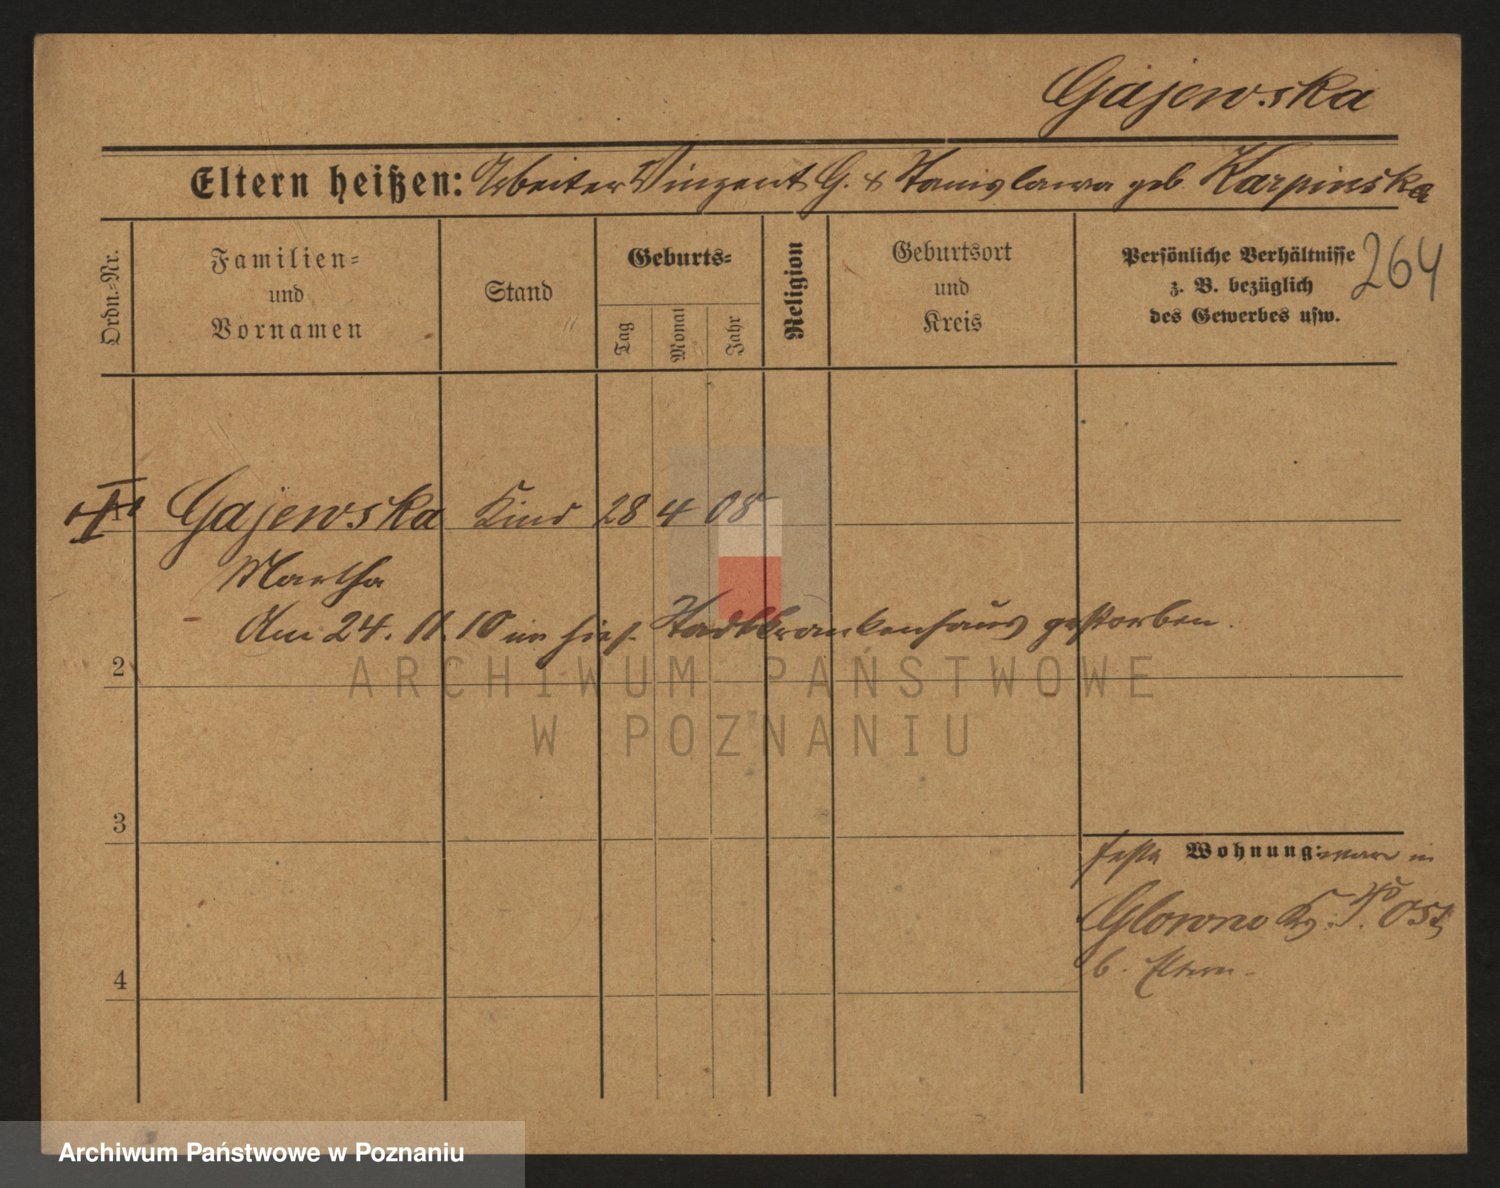 Gajewska
Eltern heißen: Arbeiter Vinzent G. & Stanislawa geb Karpinska
Ordn.-Nr.
Familien- und Vornamen
Stand
Geburts-
Tag
Monat
Jahr
Religion
Geburtsort und Kreis
Persönliche Verhältnisse
z. B. bezüglich
des Gewerbes usw.
264
1 Gajewska Kind 28 4 08
Martha
Am 24. 11. 10 im hies. Stadtkrankenhaus gestorben.
2
3
4
feste Wohnung: war in
Glowno Kr. Pos. Ost
b. Eltern.
ARCHIWUM PAŃSTWOWE
W POZNANIU
Archiwum Państwowe w Poznaniu